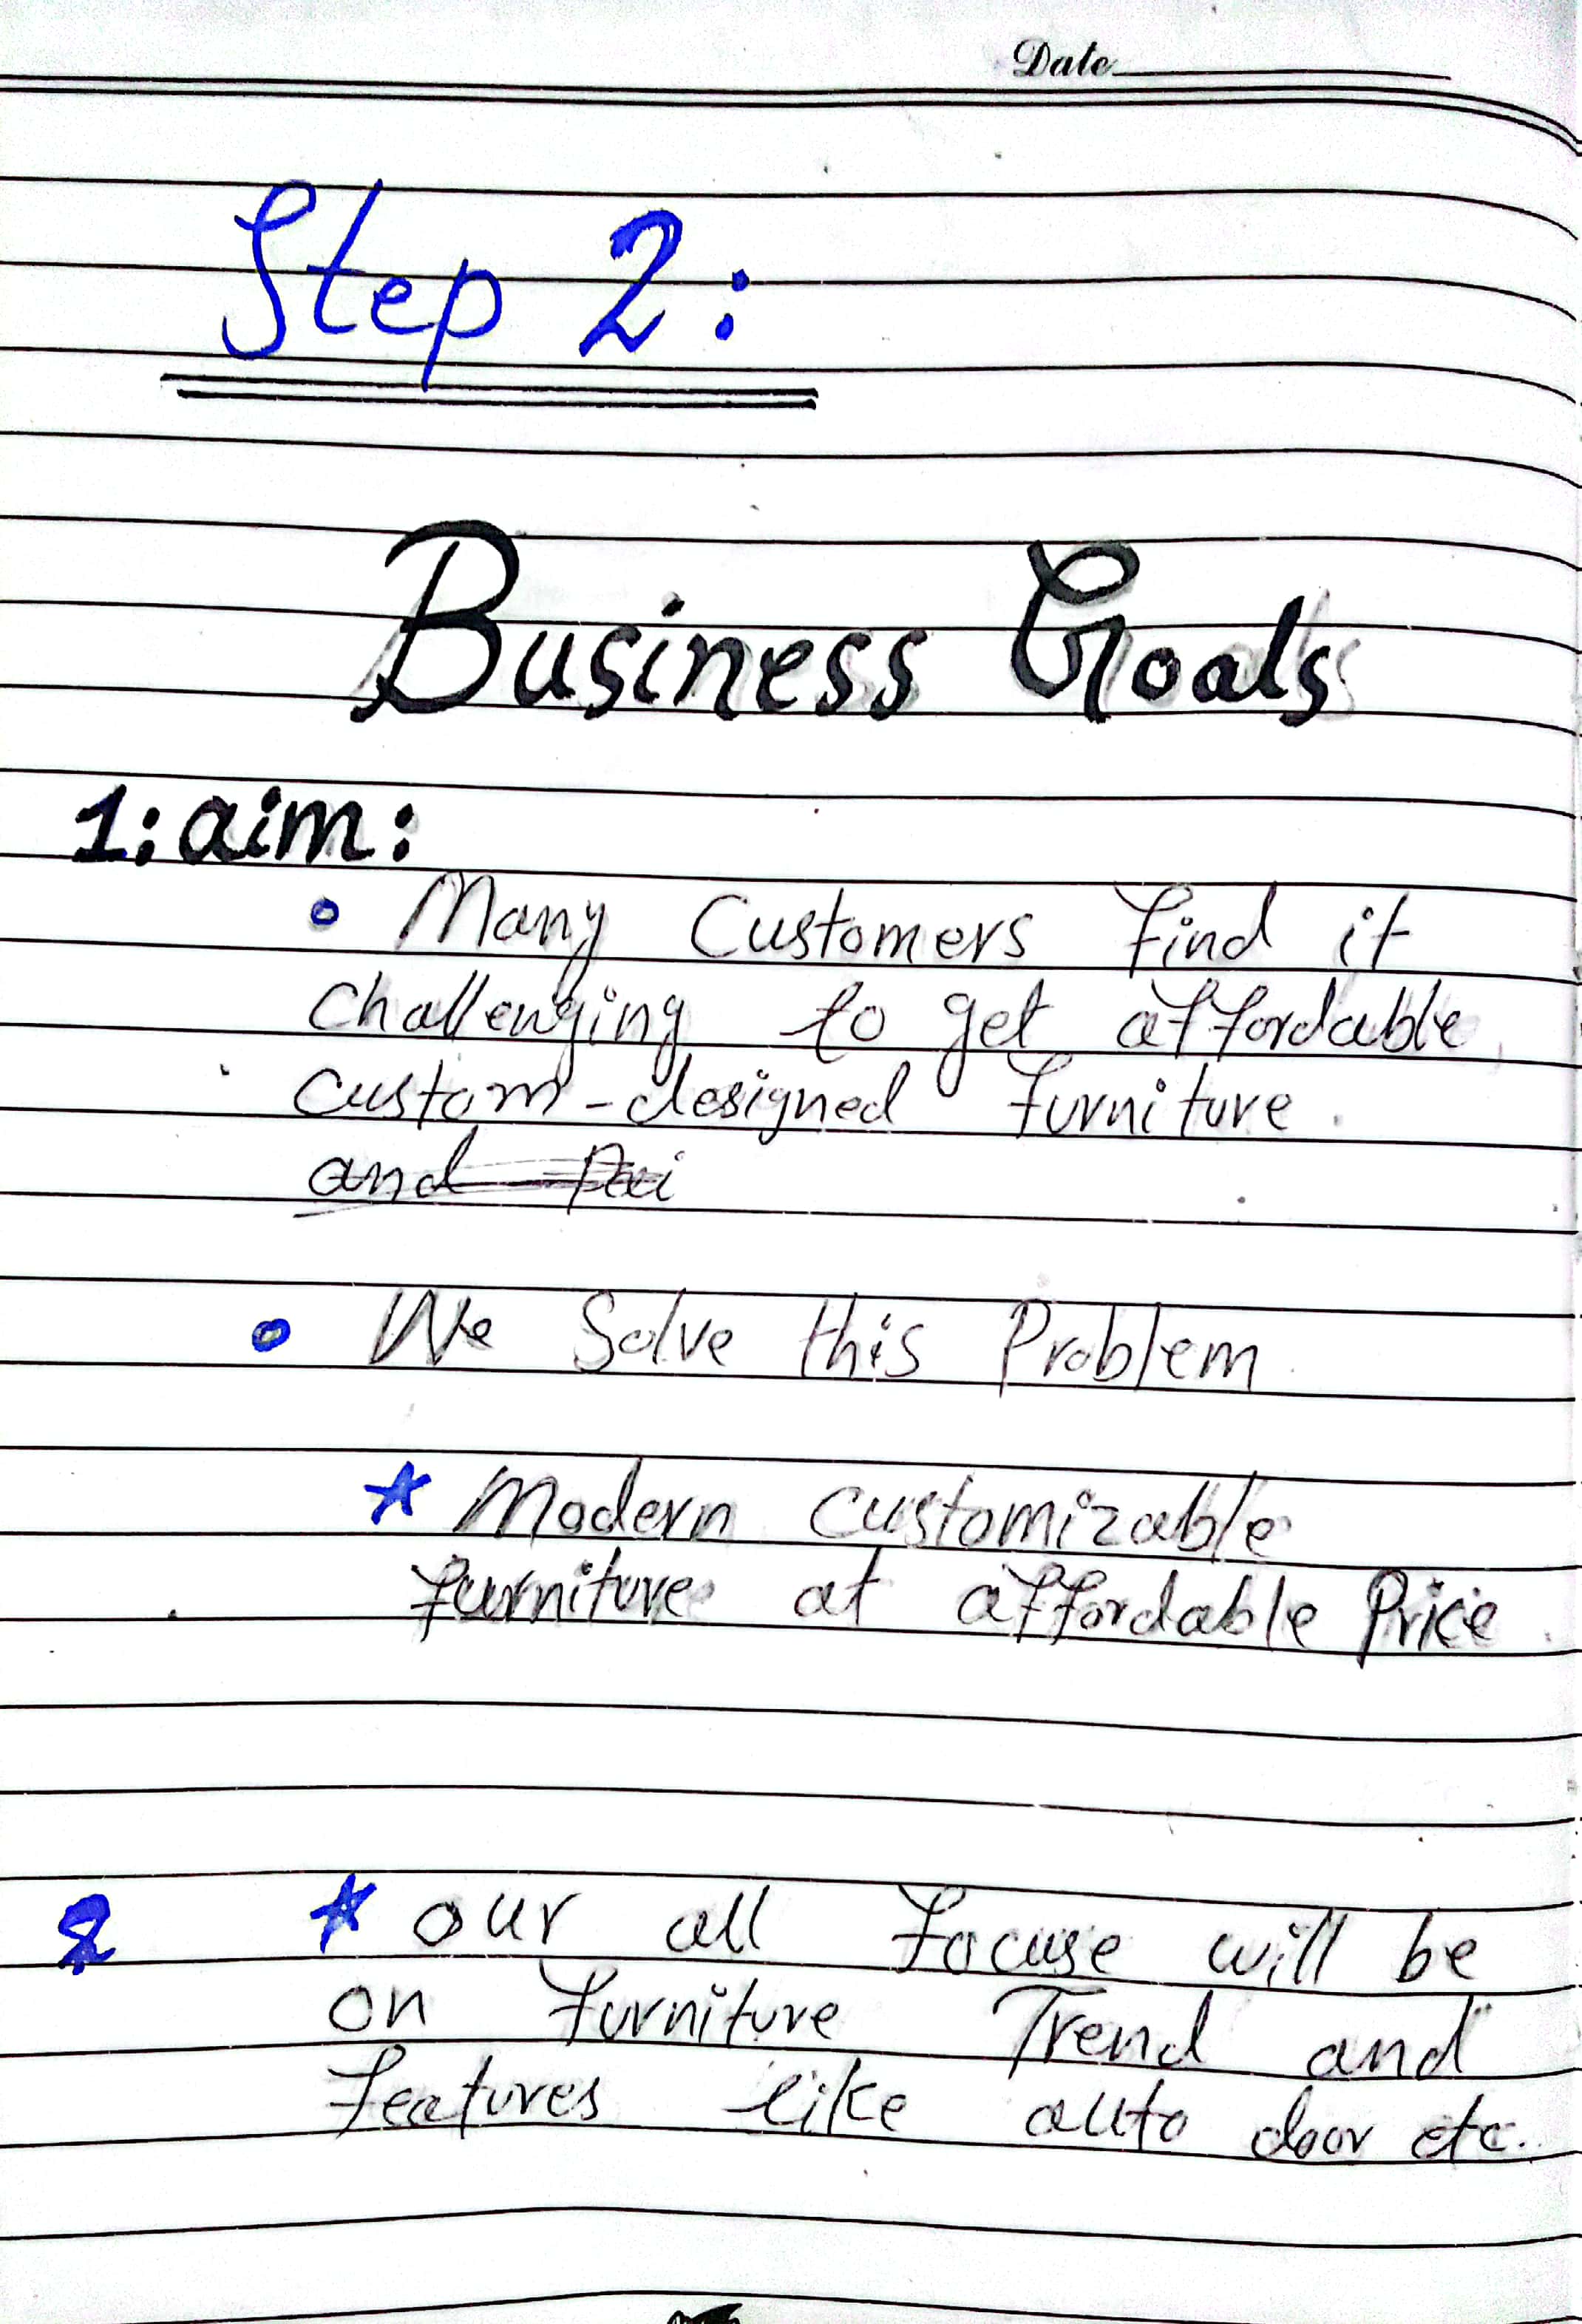 Date
Step 2:
Business Goals
1: aim:
• Many Customers find it
challenging to get affordable
custom-designed furniture.
and
• We Solve this Problem
* Modern customizable
furniture at affordable Price
2 * our all focuse will be
on furniture Trend and
features like auto door etc.